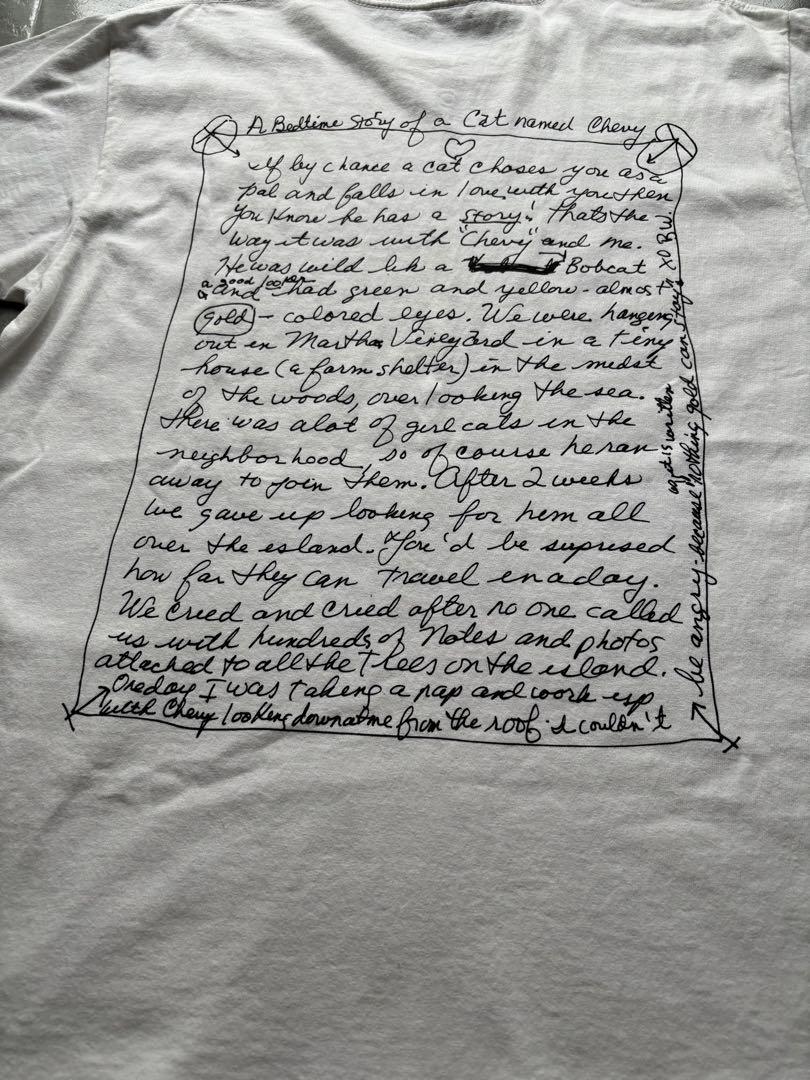 A Bedtime Story of a Cat named Chevy
If by chance a cat choses you as a
pal and falls in love with you then
you know he has a story! Thats the
way it was with "Chevy" and me.
He was wild lik a Bobcat
& a good looker
and had green and yellow - almost
gold - colored eyes. We were hanging
out in Martha Vineyard in a tiny
house (a farm shelter) in the midst
of the woods, over looking the sea.
There was alot of girl cats in the
neighborhood, so of course he ran
away to join them. After 2 weeks
we gave up looking for him all
over the island. You'd be suprised
how far they can travel in a day.
We cried and cried after no one called
us with hundreds of notes and photos
attached to all the trees on the island.
One day I was taking a nap and work up
with Chevy looking down at me from the roof. I couldn't
be angry - because nothing gold can stay. XO B.W.
as it is written